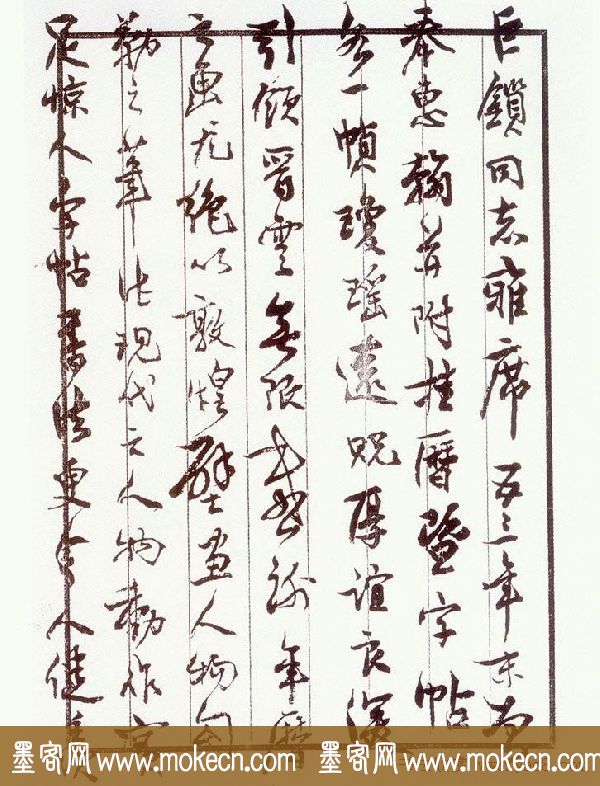 巨鎖同志雅席 五三年末
奉惠翰并附挂曆暨字帖
各一幀瓊瑤遠貺厚誼良深
引領晋雲無限 謝年曆
之画尤絶以敦煌壁画人物勾
勒之筆 現代之人物動作
足惊人字帖書法更令人健羨
墨客网 www.mokecn.com 墨客网 www.mokecn.com